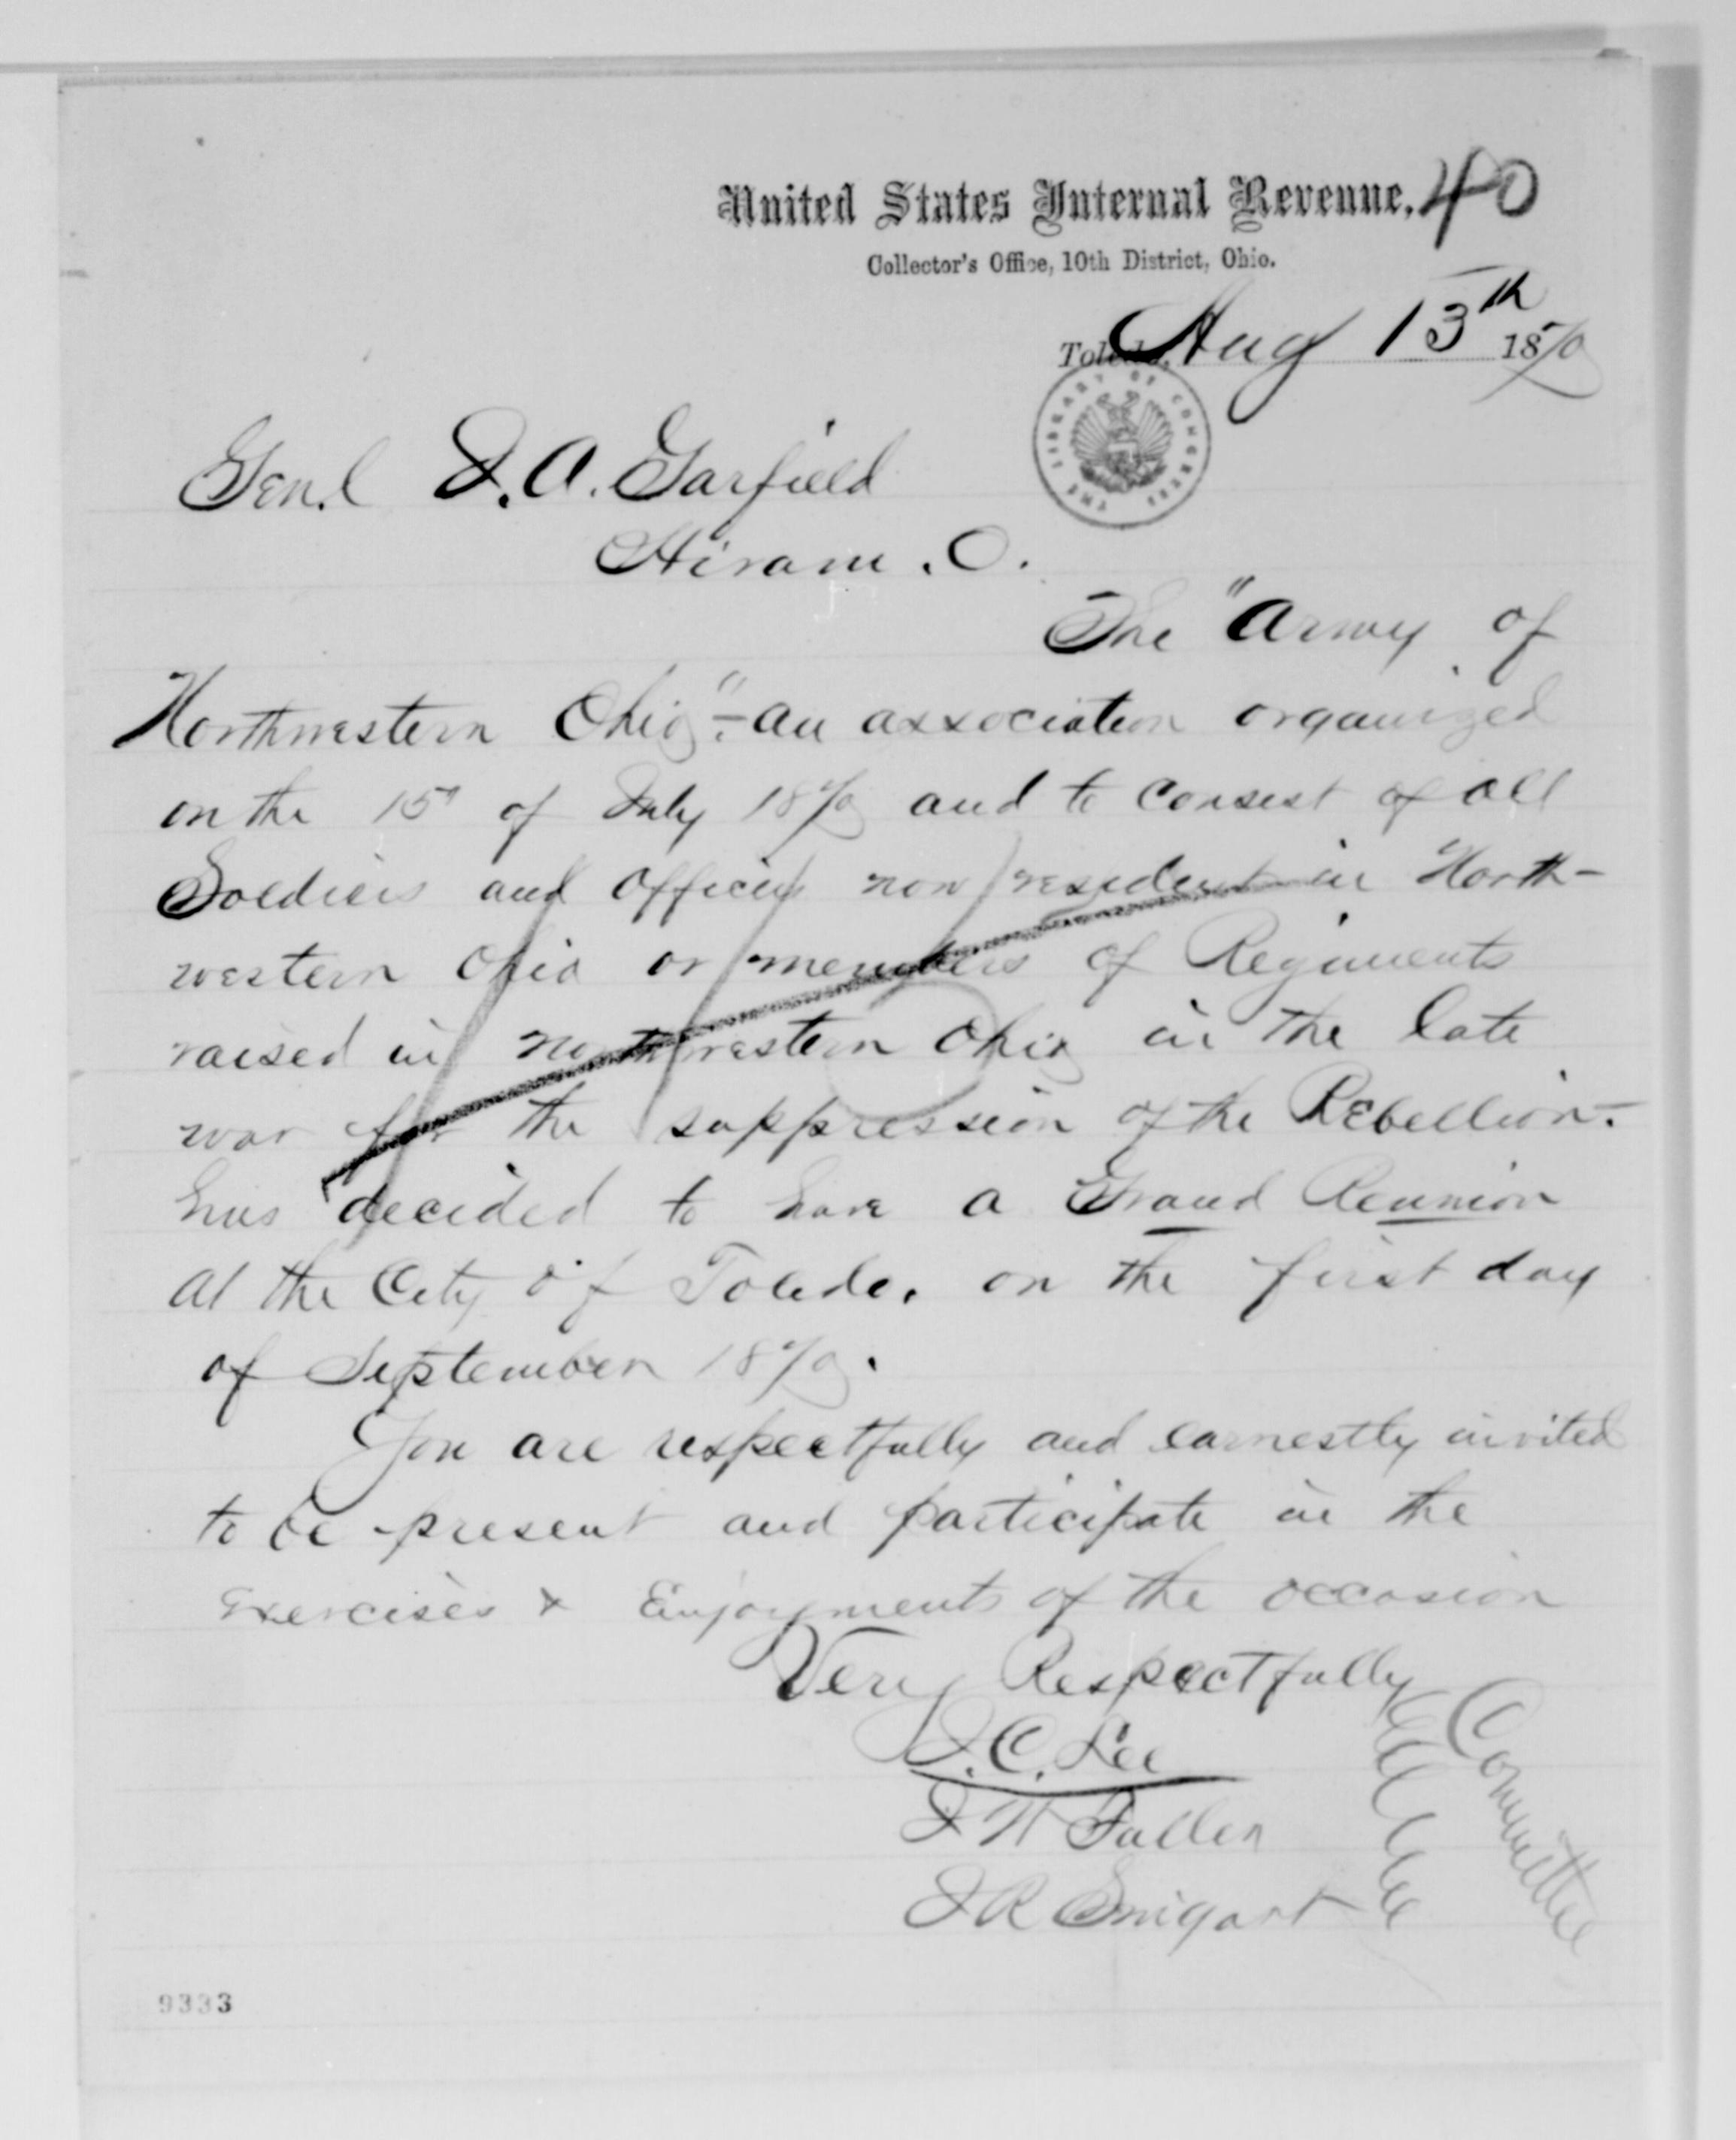 United States Internal Revenue, 40
Collector's Office, 10th District, Ohio.
Toledo, Aug 13th 1870
THE LIBRARY OF CONGRESS
Genl J. A. Garfield
Hiram. O.
The "Army of
Northwestern Ohio"- an association organized
on the 15" of July 1870 and to consist of all
Soldiers and officers now resident in North-
western Ohio or members of Regiments
raised in northwestern Ohio in the late
war for the suppression of the Rebellion.-
has decided to have a Grand Reunion
at the City of Toledo. on the first day
of September 1870.
You are respectfully and earnestly invited
to be present and participate in the
Exercises & Enjoyments of the occasion
Very Respectfully
J. C. Lee
J W Fuller
J R Swigart
Committee
9333